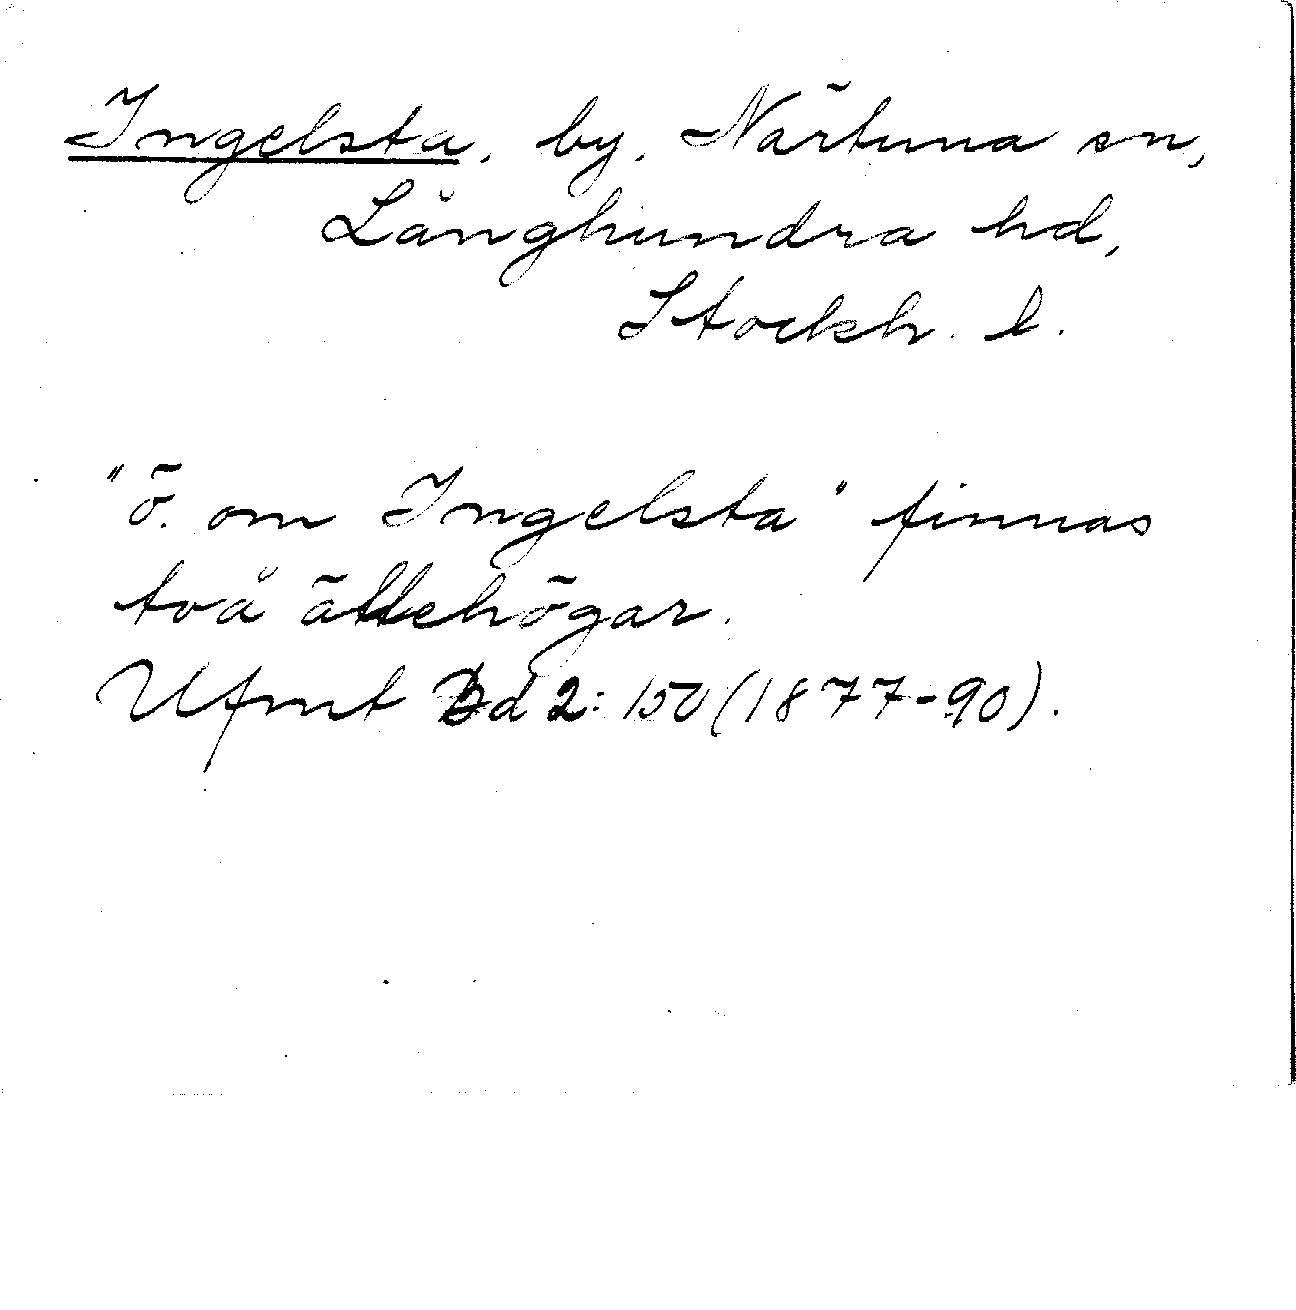 Ingelsta, by, Närtuna sn,
Långhundra hd,
Stockh. l.
"ö. om Ingelsta" finnas
två ättehögar.
Ufmt Bd 2: 150 (1877-90).